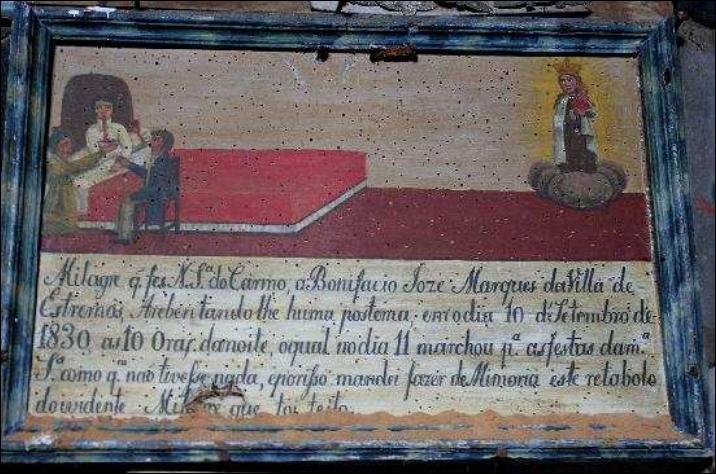 Milagre q. fes N. S.ª do Carmo, a Bonifacio Joze Marques da Villa de
Estremôs, Arebentandolhe huma postema, em o dia 10 d Setembro de
1830 as 10 Oras, da noite, o qual no dia 11 marchou p.ª as festas da m.ª
S.ª como q.m nao tivesse nada, e por isso mandei fazer de Mimoria este retabolo
do Milagre que foi feito.